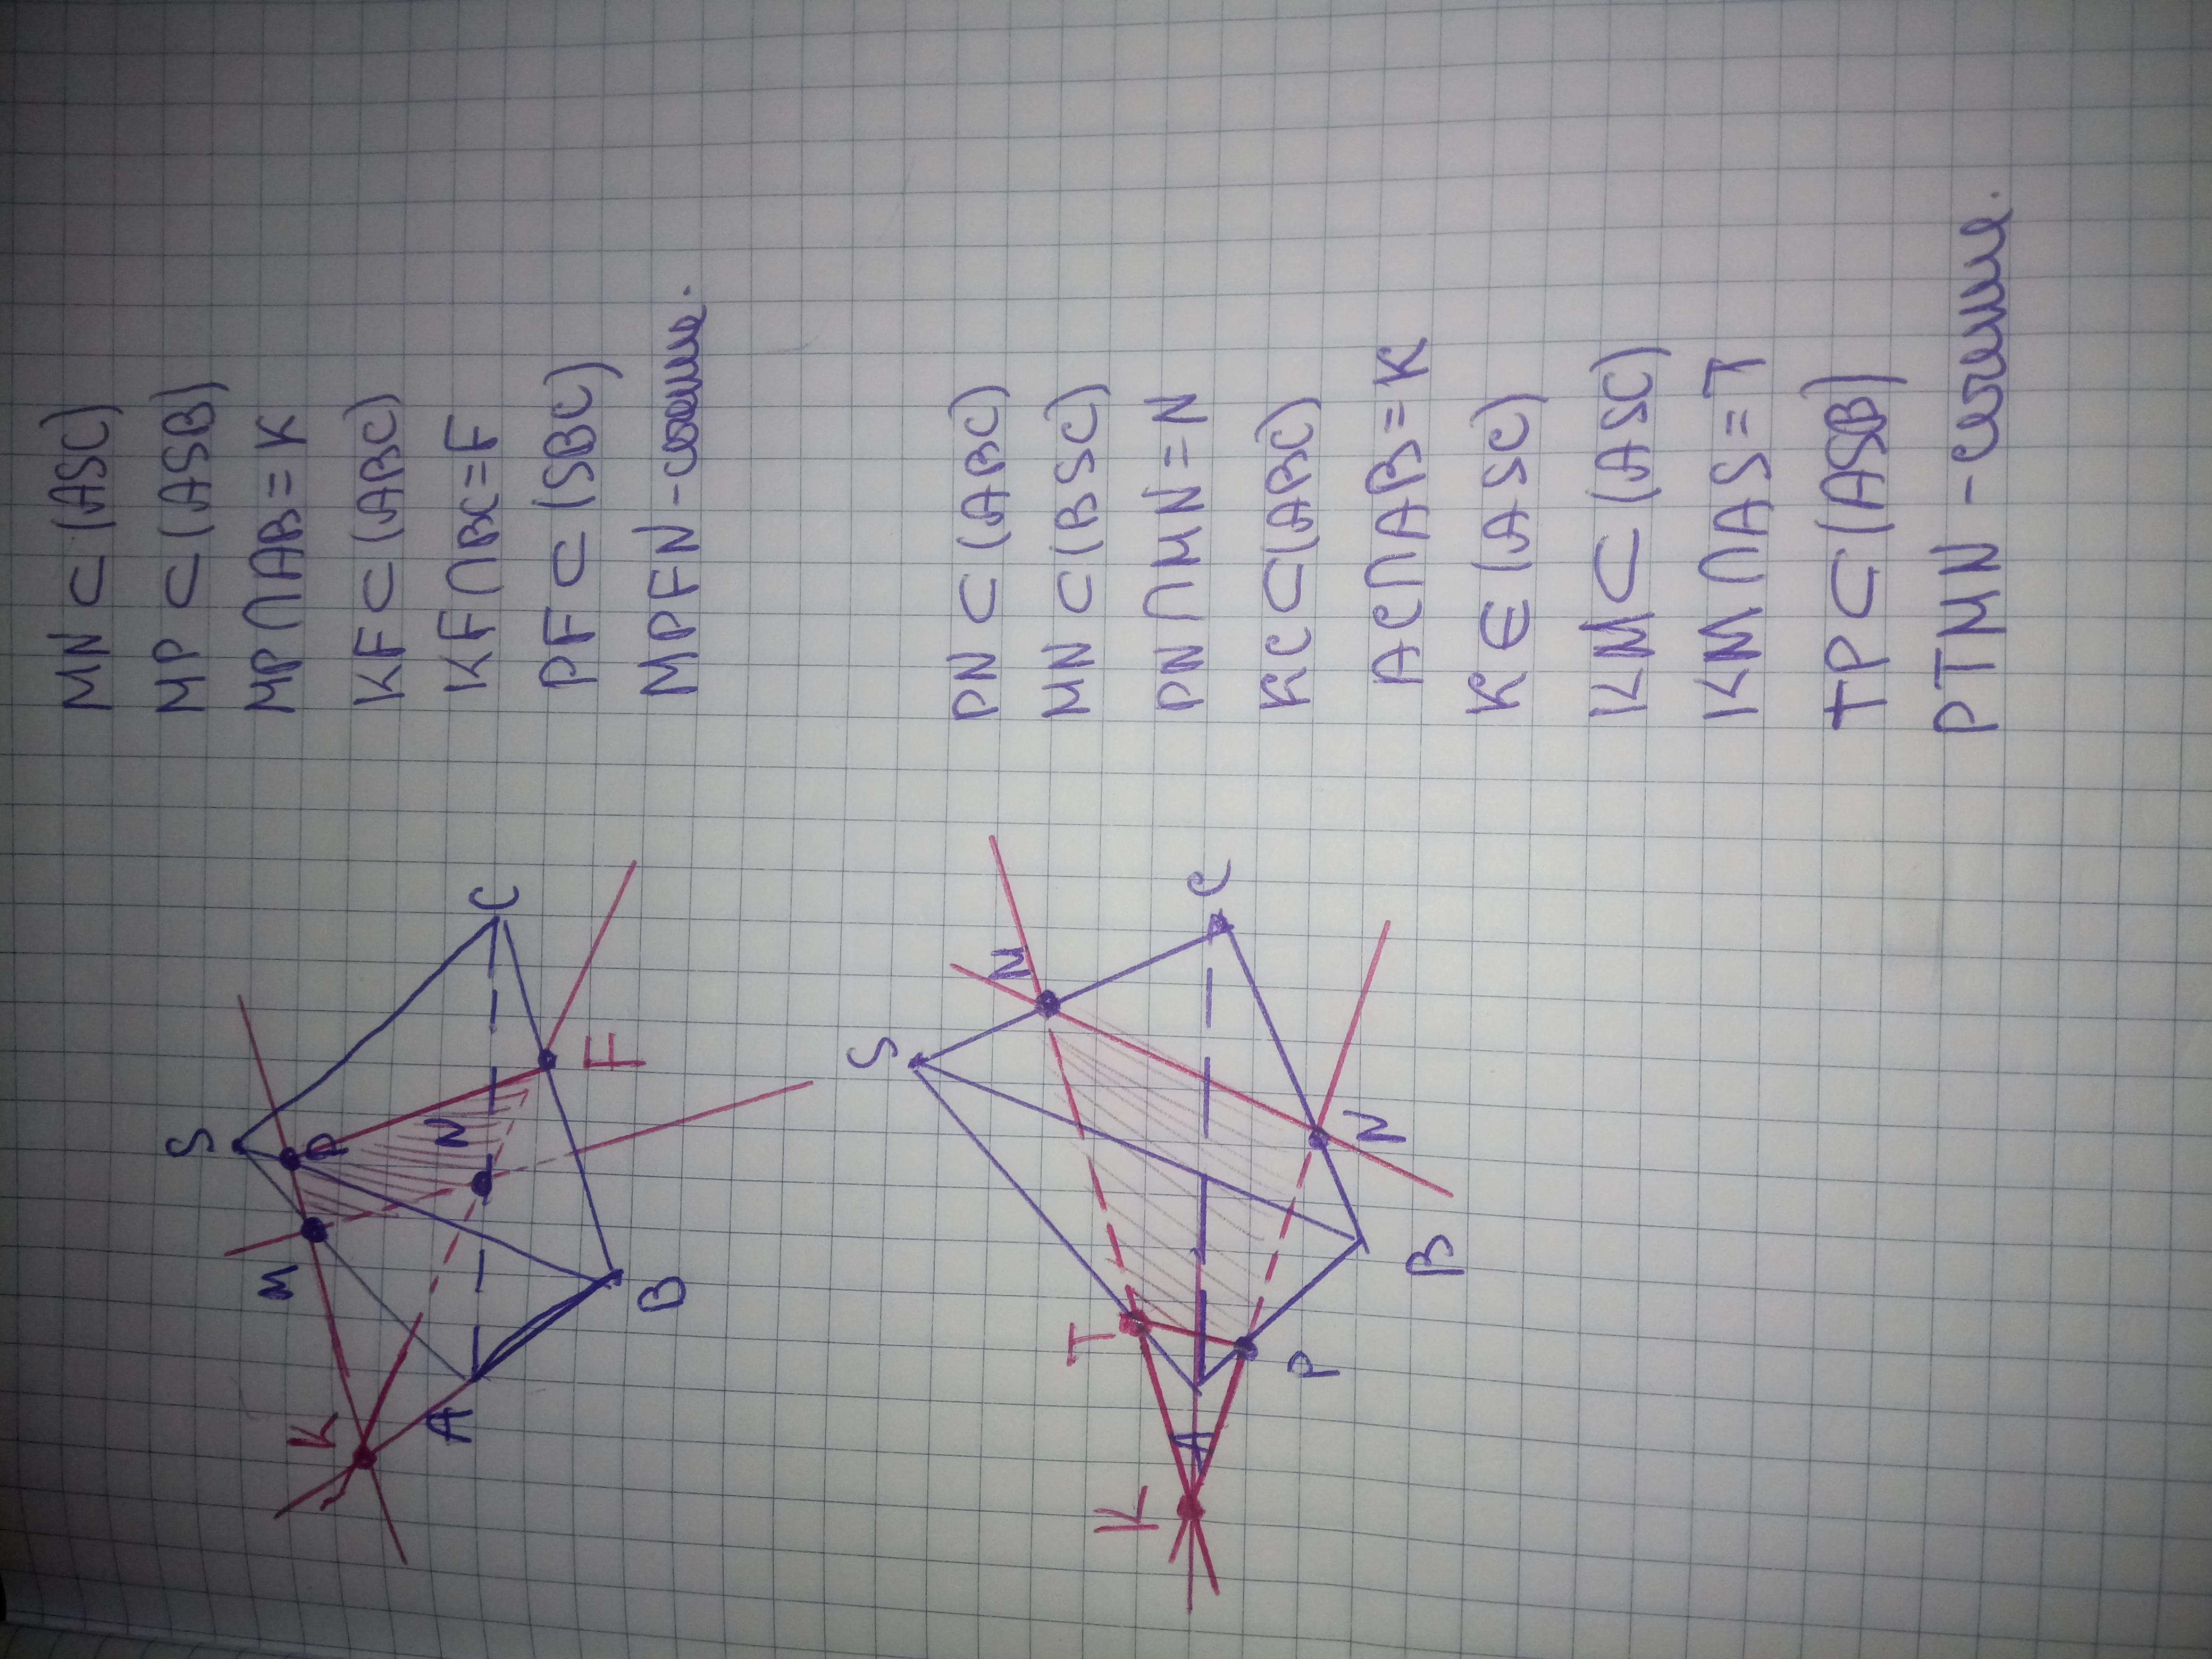 MN ⊂ (ASC)
MP ⊂ (ASB)
MP ∩ AB = K
KF ⊂ (ABC)
KF ∩ BC = F
PF ⊂ (SBC)
MPFN - сечение.
S
M
P
N
K
A
B
C
F
PN ⊂ (ABC)
MN ⊂ (BSC)
PN ∩ MN = N
KC ⊂ (ABC)
AC ∩ AB = K
K ∈ (ASC)
KM ⊂ (ASC)
KM ∩ AS = T
TP ⊂ (ASB)
PTMN - сечение.
S
M
T
K
A
C
P
N
B